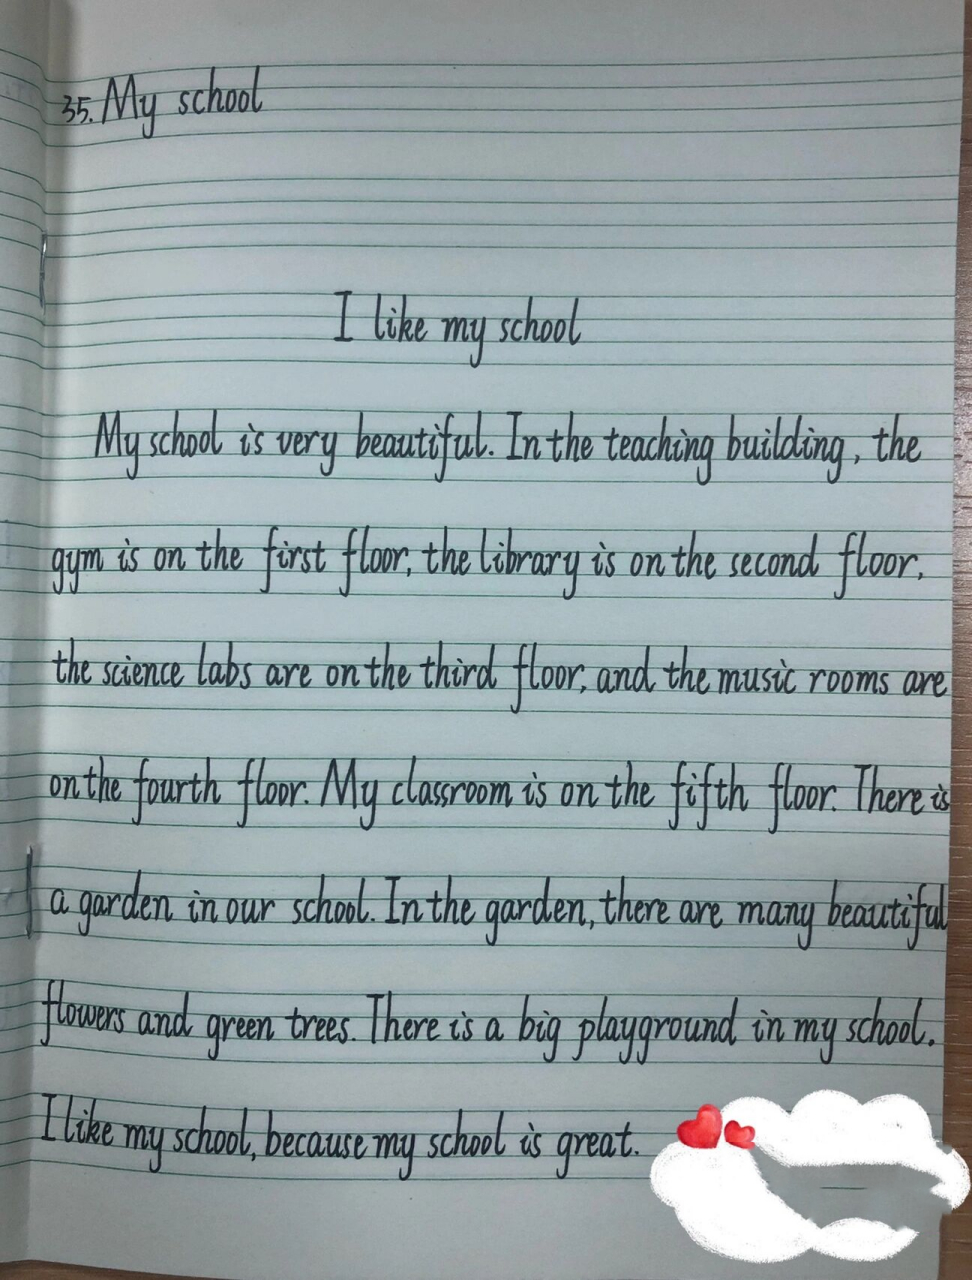 35. My school
I like my school
My school is very beautiful. In the teaching building, the
gym is on the first floor, the library is on the second floor,
the science labs are on the third floor, and the music rooms are
on the fourth floor. My classroom is on the fifth floor. There is
a garden in our school. In the garden, there are many beautiful
flowers and green trees. There is a big playground in my school.
I like my school, because my school is great.